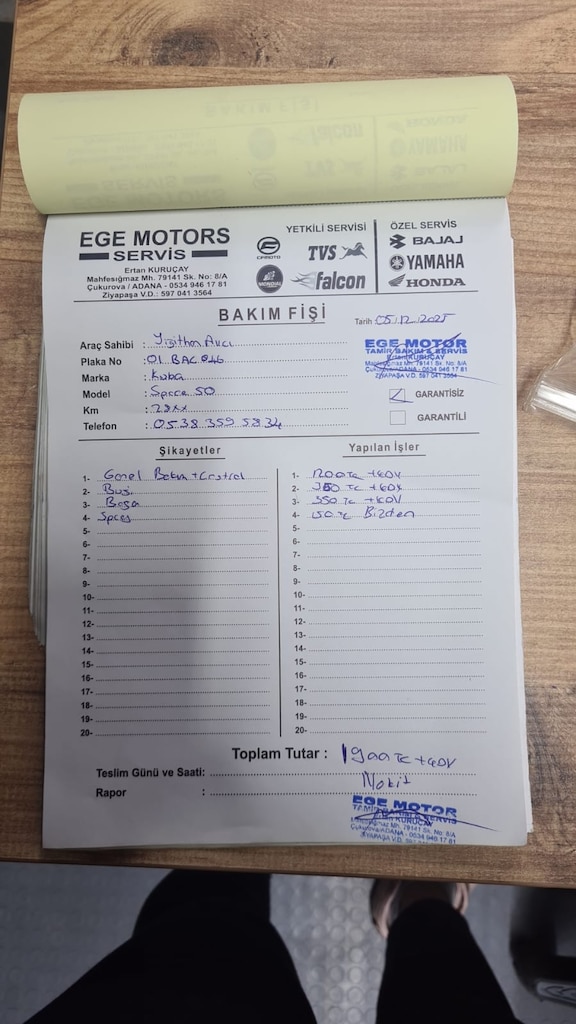 EGE MOTORS
SERVİS
Ertan KURUÇAY
Mahfesığmaz Mh. 79141 Sk. No: 8/A
Çukurova / ADANA - 0534 946 17 81
Ziyapaşa V.D.: 597 041 3564
YETKİLİ SERVİSİ
CFMOTO
TVS
MONDIAL
falcon
ÖZEL SERVİS
BAJAJ
YAMAHA
HONDA
BAKIM FİŞİ
Tarih : 05.12.2025
Araç Sahibi : Yiğithan Avcı
Plaka No : 01 BAC 046
Marka : Kuba
Model : Space 50
Km : 28xx
Telefon : 0538 359 5834
EGE MOTOR
TAMİR BAKIM & SERVİS
Ertan KURUÇAY
Mahfesığmaz Mh. 79141 Sk. No: 8/A
Çukurova/ADANA - 0534 946 17 81
ZİYAPAŞA V.D. 597 041 3564
GARANTİSİZ
GARANTİLİ
Şikayetler
1- Genel Bakım + Control
2- Buji
3-
4-
5-
6-
7-
8-
9-
10-
11-
12-
13-
14-
15-
16-
17-
18-
19-
20-
Yapılan İşler
1- 1200 TL +KDV
2- 350 TL +KDV
3- 350 TL +KDV
4- 150 TL Bizden
5-
6-
7-
8-
9-
10-
11-
12-
13-
14-
15-
16-
17-
18-
19-
20-
Toplam Tutar : 1900 TL +KDV
Teslim Günü ve Saati:
Nakit
Rapor :
EGE MOTOR
TAMİR BAKIM & SERVİS
Ertan KURUÇAY
Mahfesığmaz Mh. 79141 Sk. No: 8/A
Çukurova/ADANA - 0534 946 17 81
ZİYAPAŞA V.D. 597 041 3564